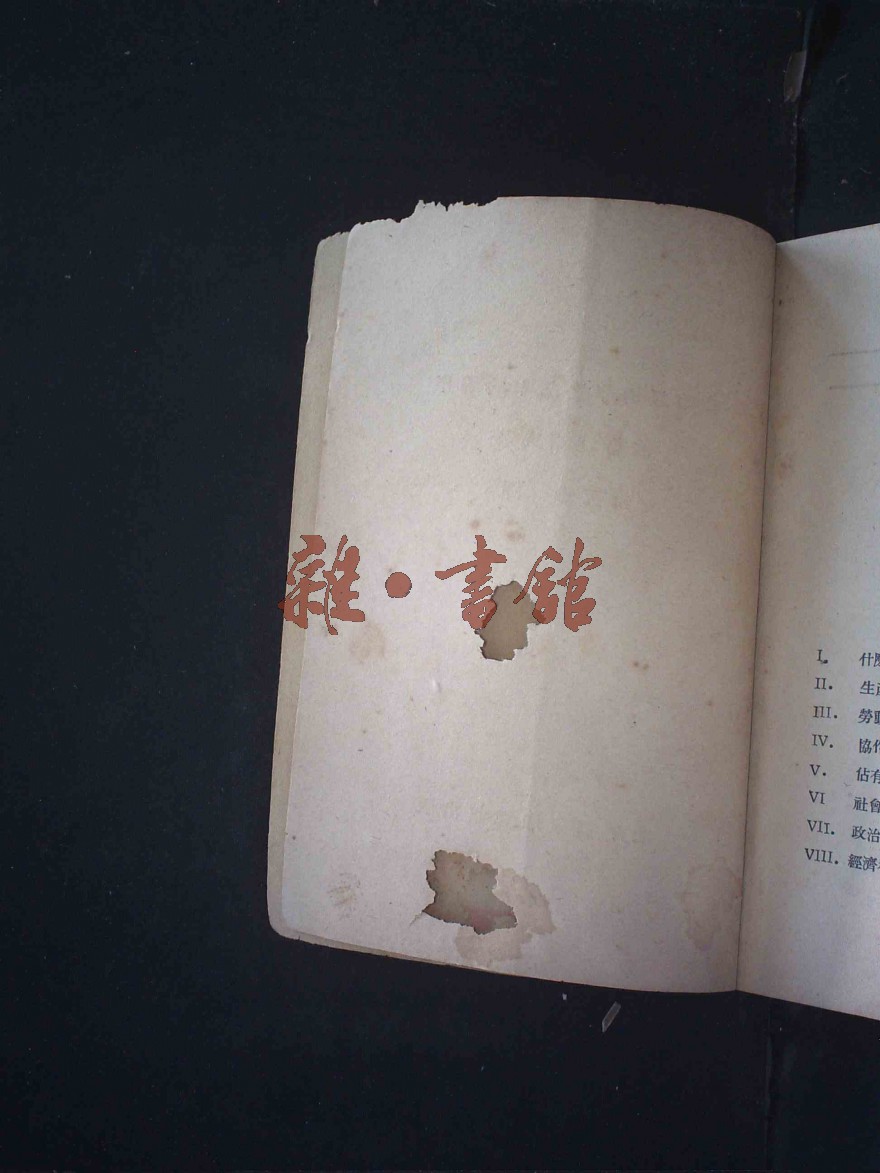 雜·書館
I. 什
II. 生產
III. 勞
IV. 協作
V. 佔有
VI 社會
VII. 政治
VIII. 經濟